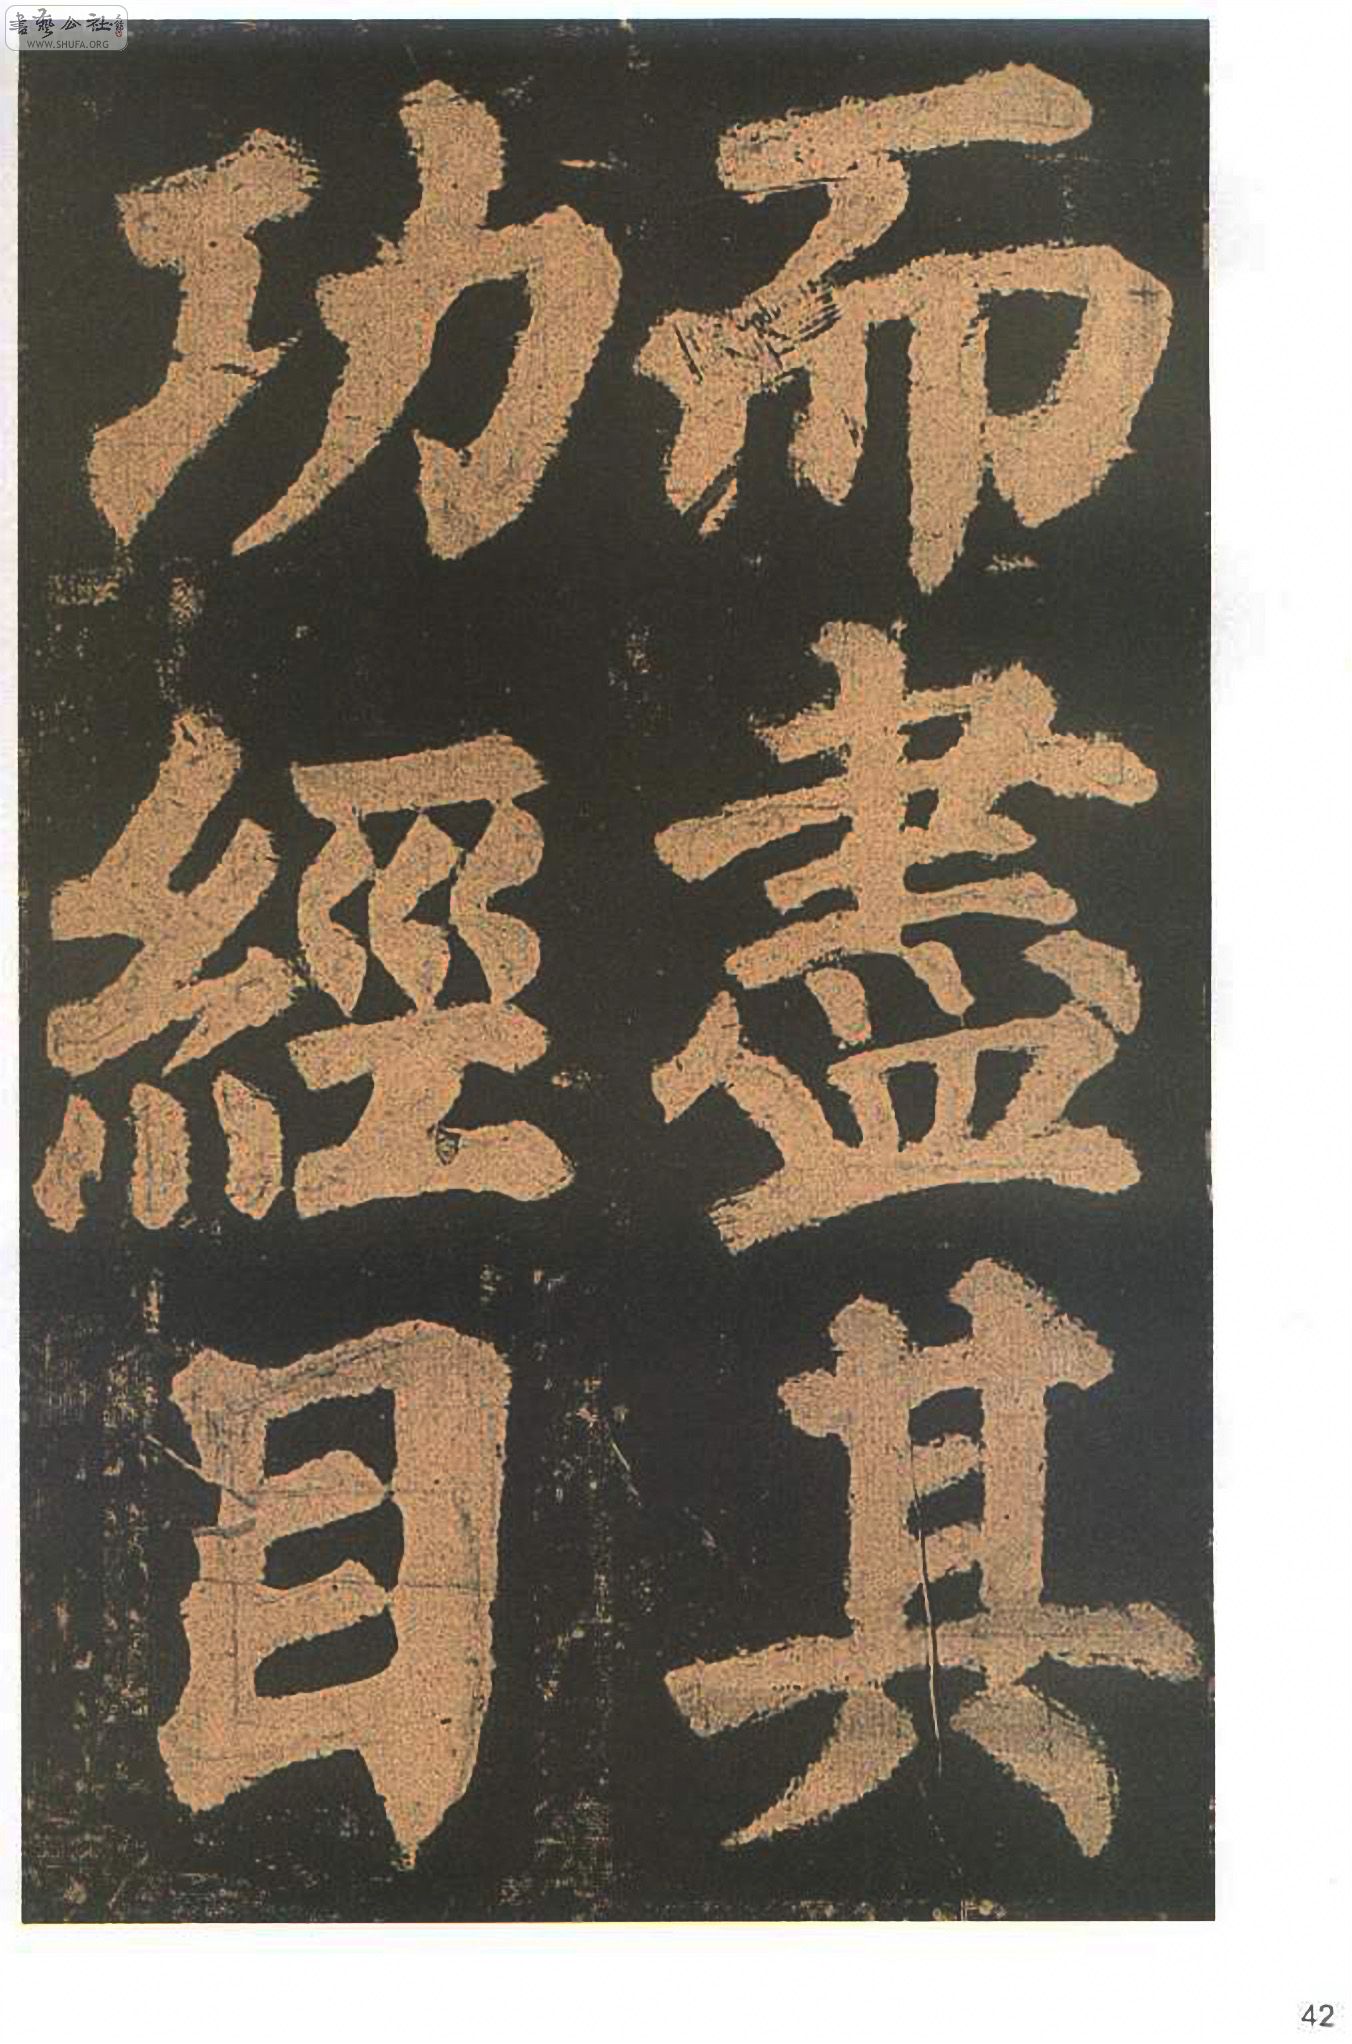 而盡其
功經目
書藝公社
WWW.SHUFA.ORG
42